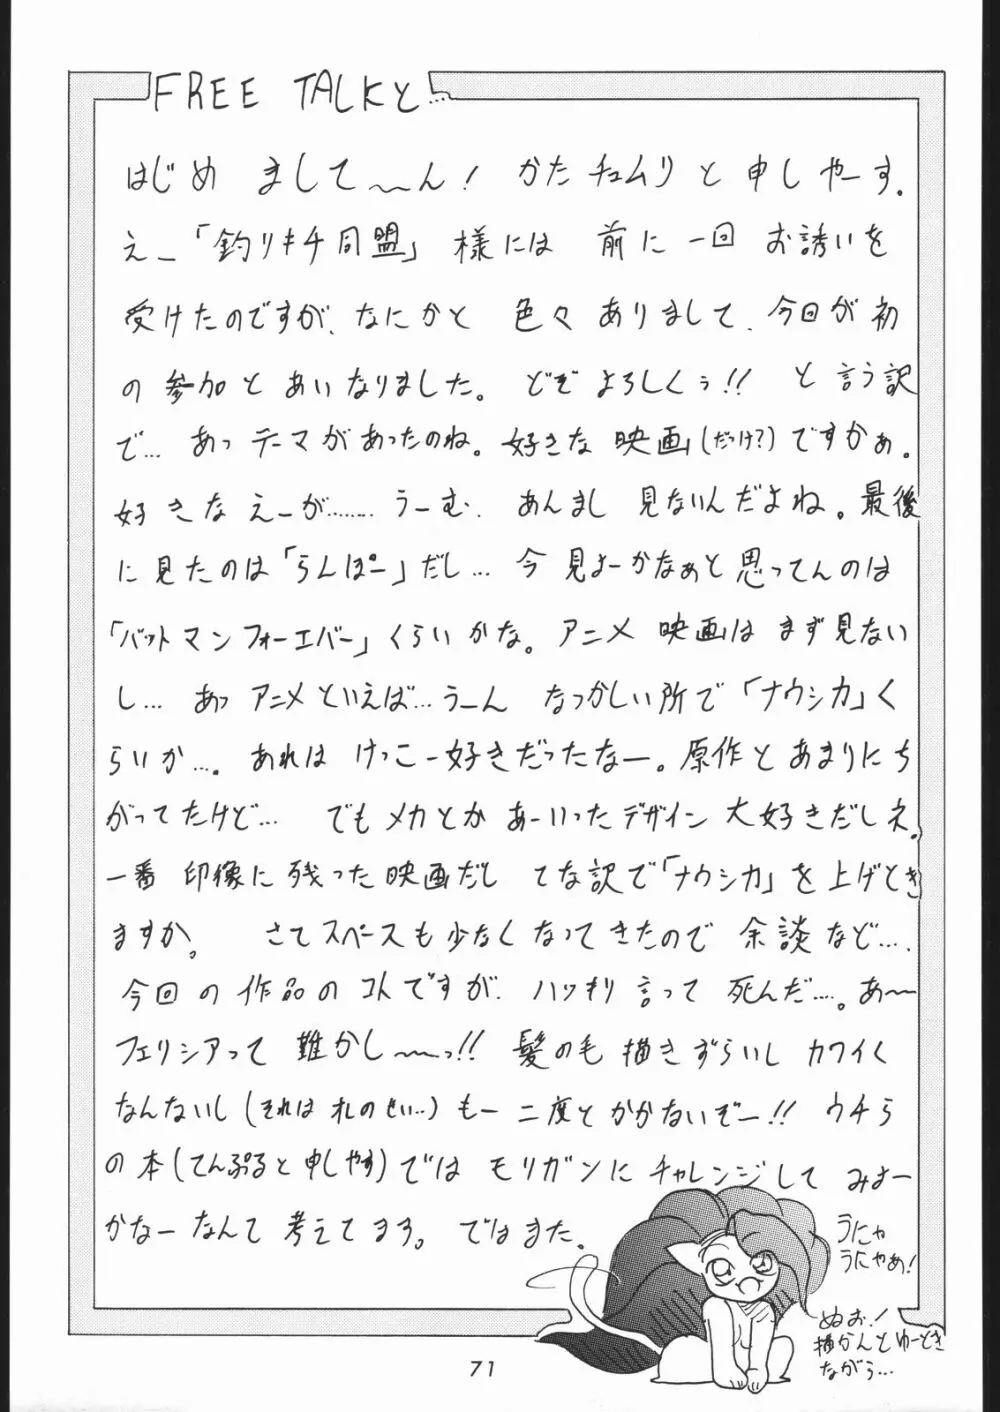 FREE TALKと…
はじめ ましてーーん! かたチュムリ と 申しやーす.
えー「釣りキチ同盟」様には 前に一回 お誘いを
受けたのですが、なにかと 色々 ありまして、今回が初
の参加と あいなりました。どぞ よろしくぅ!! と言う訳
で… あっ テーマがあったのね。好きな 映画(だっけ?)ですかぁ。
好きな えーが……… うーむ、あんまし 見ないんだよね。最後
に見たのは「らんぽー」だし… 今 見よーかなぁと思ってんのは
「バットマン フォーエバー」くらいかな。アニメ 映画は まず見ない
し… あっ アニメといえば…うーん なつかしい所で「ナウシカ」く
らいか…. あれは けっこー好きだったなー。原作と あまりにち
がってたけど… でもメカとか あーいったデザイン 大好きだしネ。
一番 印像に 残った映画だし てな訳で「ナウシカ」を上げとき
ますか。 さてスペースも少なくなってきたので 余談など….
今回の作品のコトですが、ハッキリ言って 死んだ…。あ〜
フェリシアって 難かし〜〜っ!! 髪の毛 描きずらいし カワイく
なんないし(それは オレのせい…) もー 二度と かかないぞー!! ウチら
の本(てんぷると申しやす)では モリガンにチャレンジして みよー
かなーなんて 考えてます。ではまた。
うにゃ
うにゃあ!
ぬお!
描かんとゆーとき
ながら…
71